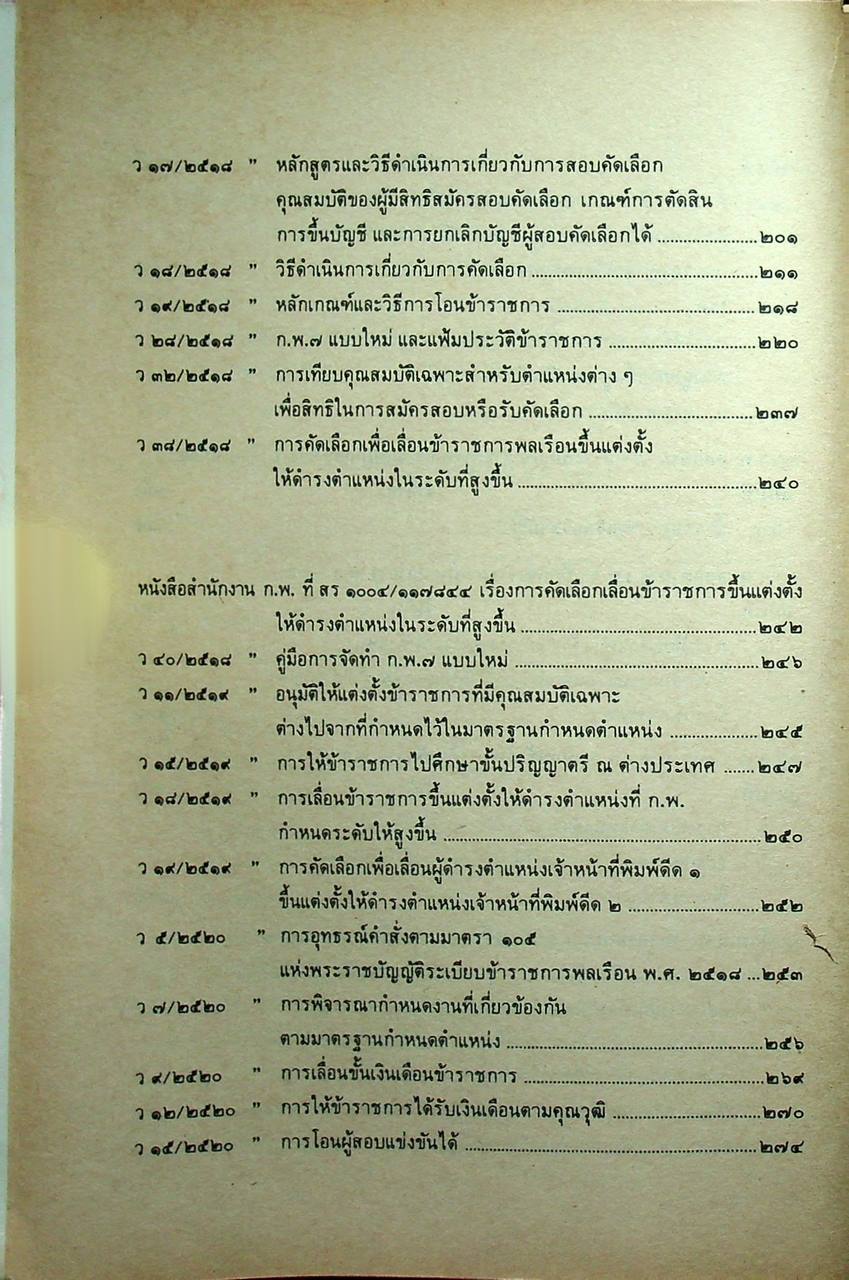 ว ๑๗/๒๕๑๘ " หลักสูตรและวิธีดำเนินการเกี่ยวกับการสอบคัดเลือก
คุณสมบัติของผู้มีสิทธิสมัครสอบคัดเลือก เกณฑ์การตัดสิน
การขึ้นบัญชี และการยกเลิกบัญชีผู้สอบคัดเลือกได้ ......................๒๐๑
ว ๑๘/๒๕๑๘ " วิธีดำเนินการเกี่ยวกับการคัดเลือก ..................................................๒๑๑
ว ๑๙/๒๕๑๘ " หลักเกณฑ์และวิธีการโอนข้าราชการ ............................................๒๑๘
ว ๒๘/๒๕๑๘ " ก.พ.๗ แบบใหม่ และแฟ้มประวัติข้าราชการ .................................๒๒๐
ว ๓๒/๒๕๑๘ " การเทียบคุณสมบัติเฉพาะสำหรับตำแหน่งต่าง ๆ
เพื่อสิทธิในการสมัครสอบหรือรับคัดเลือก .....................................๒๓๗
ว ๓๘/๒๕๑๘ " การคัดเลือกเพื่อเลื่อนข้าราชการพลเรือนขึ้นแต่งตั้ง
ให้ดำรงตำแหน่งในระดับที่สูงขึ้น .....................................................๒๔๐
หนังสือสำนักงาน ก.พ. ที่ สร ๑๐๐๔/๑๑๗๘๔๔ เรื่องการคัดเลือกเลื่อนข้าราชการขึ้นแต่งตั้ง
ให้ดำรงตำแหน่งในระดับที่สูงขึ้น .....................................................๒๔๒
ว ๔๐/๒๕๑๘ " คู่มือการจัดทำ ก.พ.๗ แบบใหม่ ......................................................๒๔๖
ว ๑๑/๒๕๑๙ " อนุมัติให้แต่งตั้งข้าราชการที่มีคุณสมบัติเฉพาะ
ต่างไปจากที่กำหนดไว้ในมาตรฐานกำหนดตำแหน่ง ...................๒๔๕
ว ๑๕/๒๕๑๙ " การให้ข้าราชการไปศึกษาขั้นปริญญาตรี ณ ต่างประเทศ .......๒๔๗
ว ๑๘/๒๕๑๙ " การเลื่อนข้าราชการขึ้นแต่งตั้งให้ดำรงตำแหน่งที่ ก.พ.
กำหนดระดับให้สูงขึ้น ......................................................................๒๕๐
ว ๑๙/๒๕๑๙ " การคัดเลือกเพื่อเลื่อนผู้ดำรงตำแหน่งเจ้าหน้าที่พิมพ์ดีด ๑
ขึ้นแต่งตั้งให้ดำรงตำแหน่งเจ้าหน้าที่พิมพ์ดีด ๒ .............................๒๕๒
ว ๕/๒๕๒๐ " การอุทธรณ์คำสั่งตามมาตรา ๑๐๕
แห่งพระราชบัญญัติระเบียบข้าราชการพลเรือน พ.ศ. ๒๕๑๘ ...๒๕๓
ว ๗/๒๕๒๐ " การพิจารณากำหนดงานที่เกี่ยวข้องกัน
ตามมาตรฐานกำหนดตำแหน่ง .........................................................๒๕๖
ว ๙/๒๕๒๐ " การเลื่อนขั้นเงินเดือนข้าราชการ .....................................................๒๖๙
ว ๑๒/๒๕๒๐ " การให้ข้าราชการได้รับเงินเดือนตามคุณวุฒิ .................................๒๗๐
ว ๑๕/๒๕๒๐ " การโอนผู้สอบแข่งขันได้ .................................................................๒๗๔